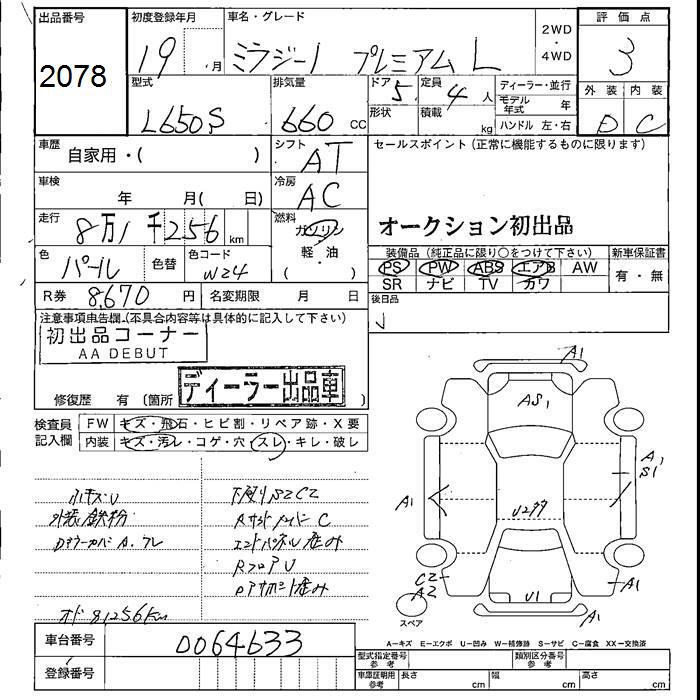 出品番号
2078
初度登録年月
19 . 月
車名・グレード
ミラジーノ プレミアム L
2WD
・
4WD
評価点
3
型式
L650S
排気量
660 CC
ドア 5
定員 4 人
形状
積載 kg
ディーラー・並行
モデル年式 年
ハンドル 左・右
外装 内装
D C
車歴
自家用・( )
シフト
AT
セールスポイント(正常に機能するものに限ります)
オークション初出品
車検
年 月( 日)
冷房
AC
走行
8万1千256 km
燃料
ガソリン
軽・油
( ・ )
色
パール
色替
色コード
W24
装備品(純正品に限り○をつけて下さい)
PS PW ABS エアB AW
SR ナビ TV カワ
新車保証書
有・無
R券 8,670 円
名変期限 月 日
後日品
注意事項申告欄.(不具合内容等は具体的に記入して下さい)
初出品コーナー
AA DEBUT
ディーラー出品車
修復歴 有 (箇所
検査員
記入欄
FW キズ・飛石・ヒビ割・リペア跡・X要
内装 キズ・汚レ・コゲ・穴・スレ・キレ・破レ
小キズU
外装鉄粉
下廻りS2C2
Rサイドメンバー C
エンドパネル歪み
RフロアU
オド 81256km
車台番号
0064633
登録番号
A1
AS1
A1
S1
A1
U2
C2
A2
U1
A1
A1
スペア
A-キズ E-エクボ U-凹み W-補修跡 S-サビ C-腐食 XX-交換済
型式指定番号
参考
類別区分番号
参考
車庫証明用
参考
長さ cm
幅 cm
高さ cm